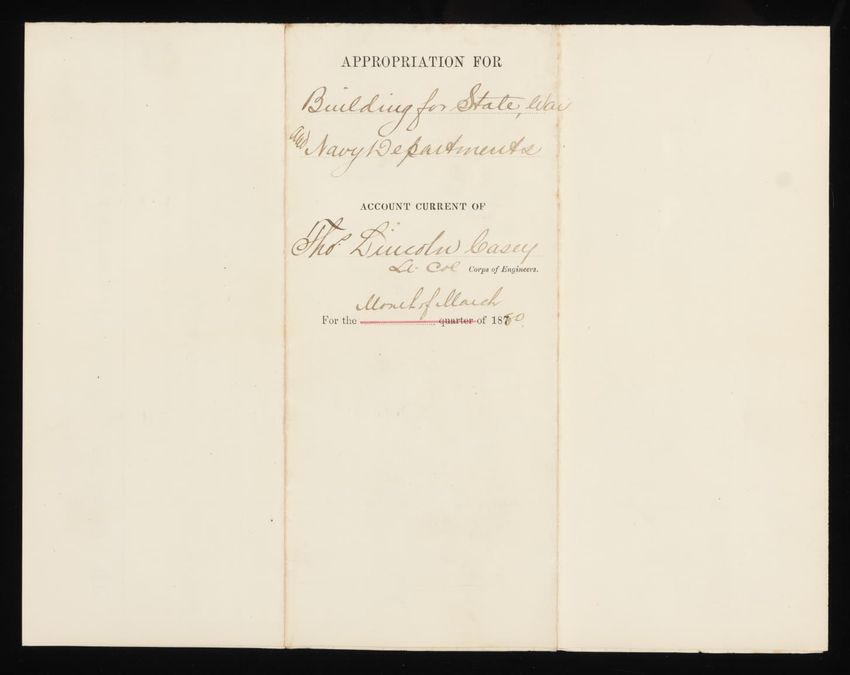 APPROPRIATION FOR
Building for State, War
and Navy Departments
ACCOUNT CURRENT OF
Thos. Lincoln Casey
Lt. Col Corps of Engineers.
Month of March
For the quarter of 1880.